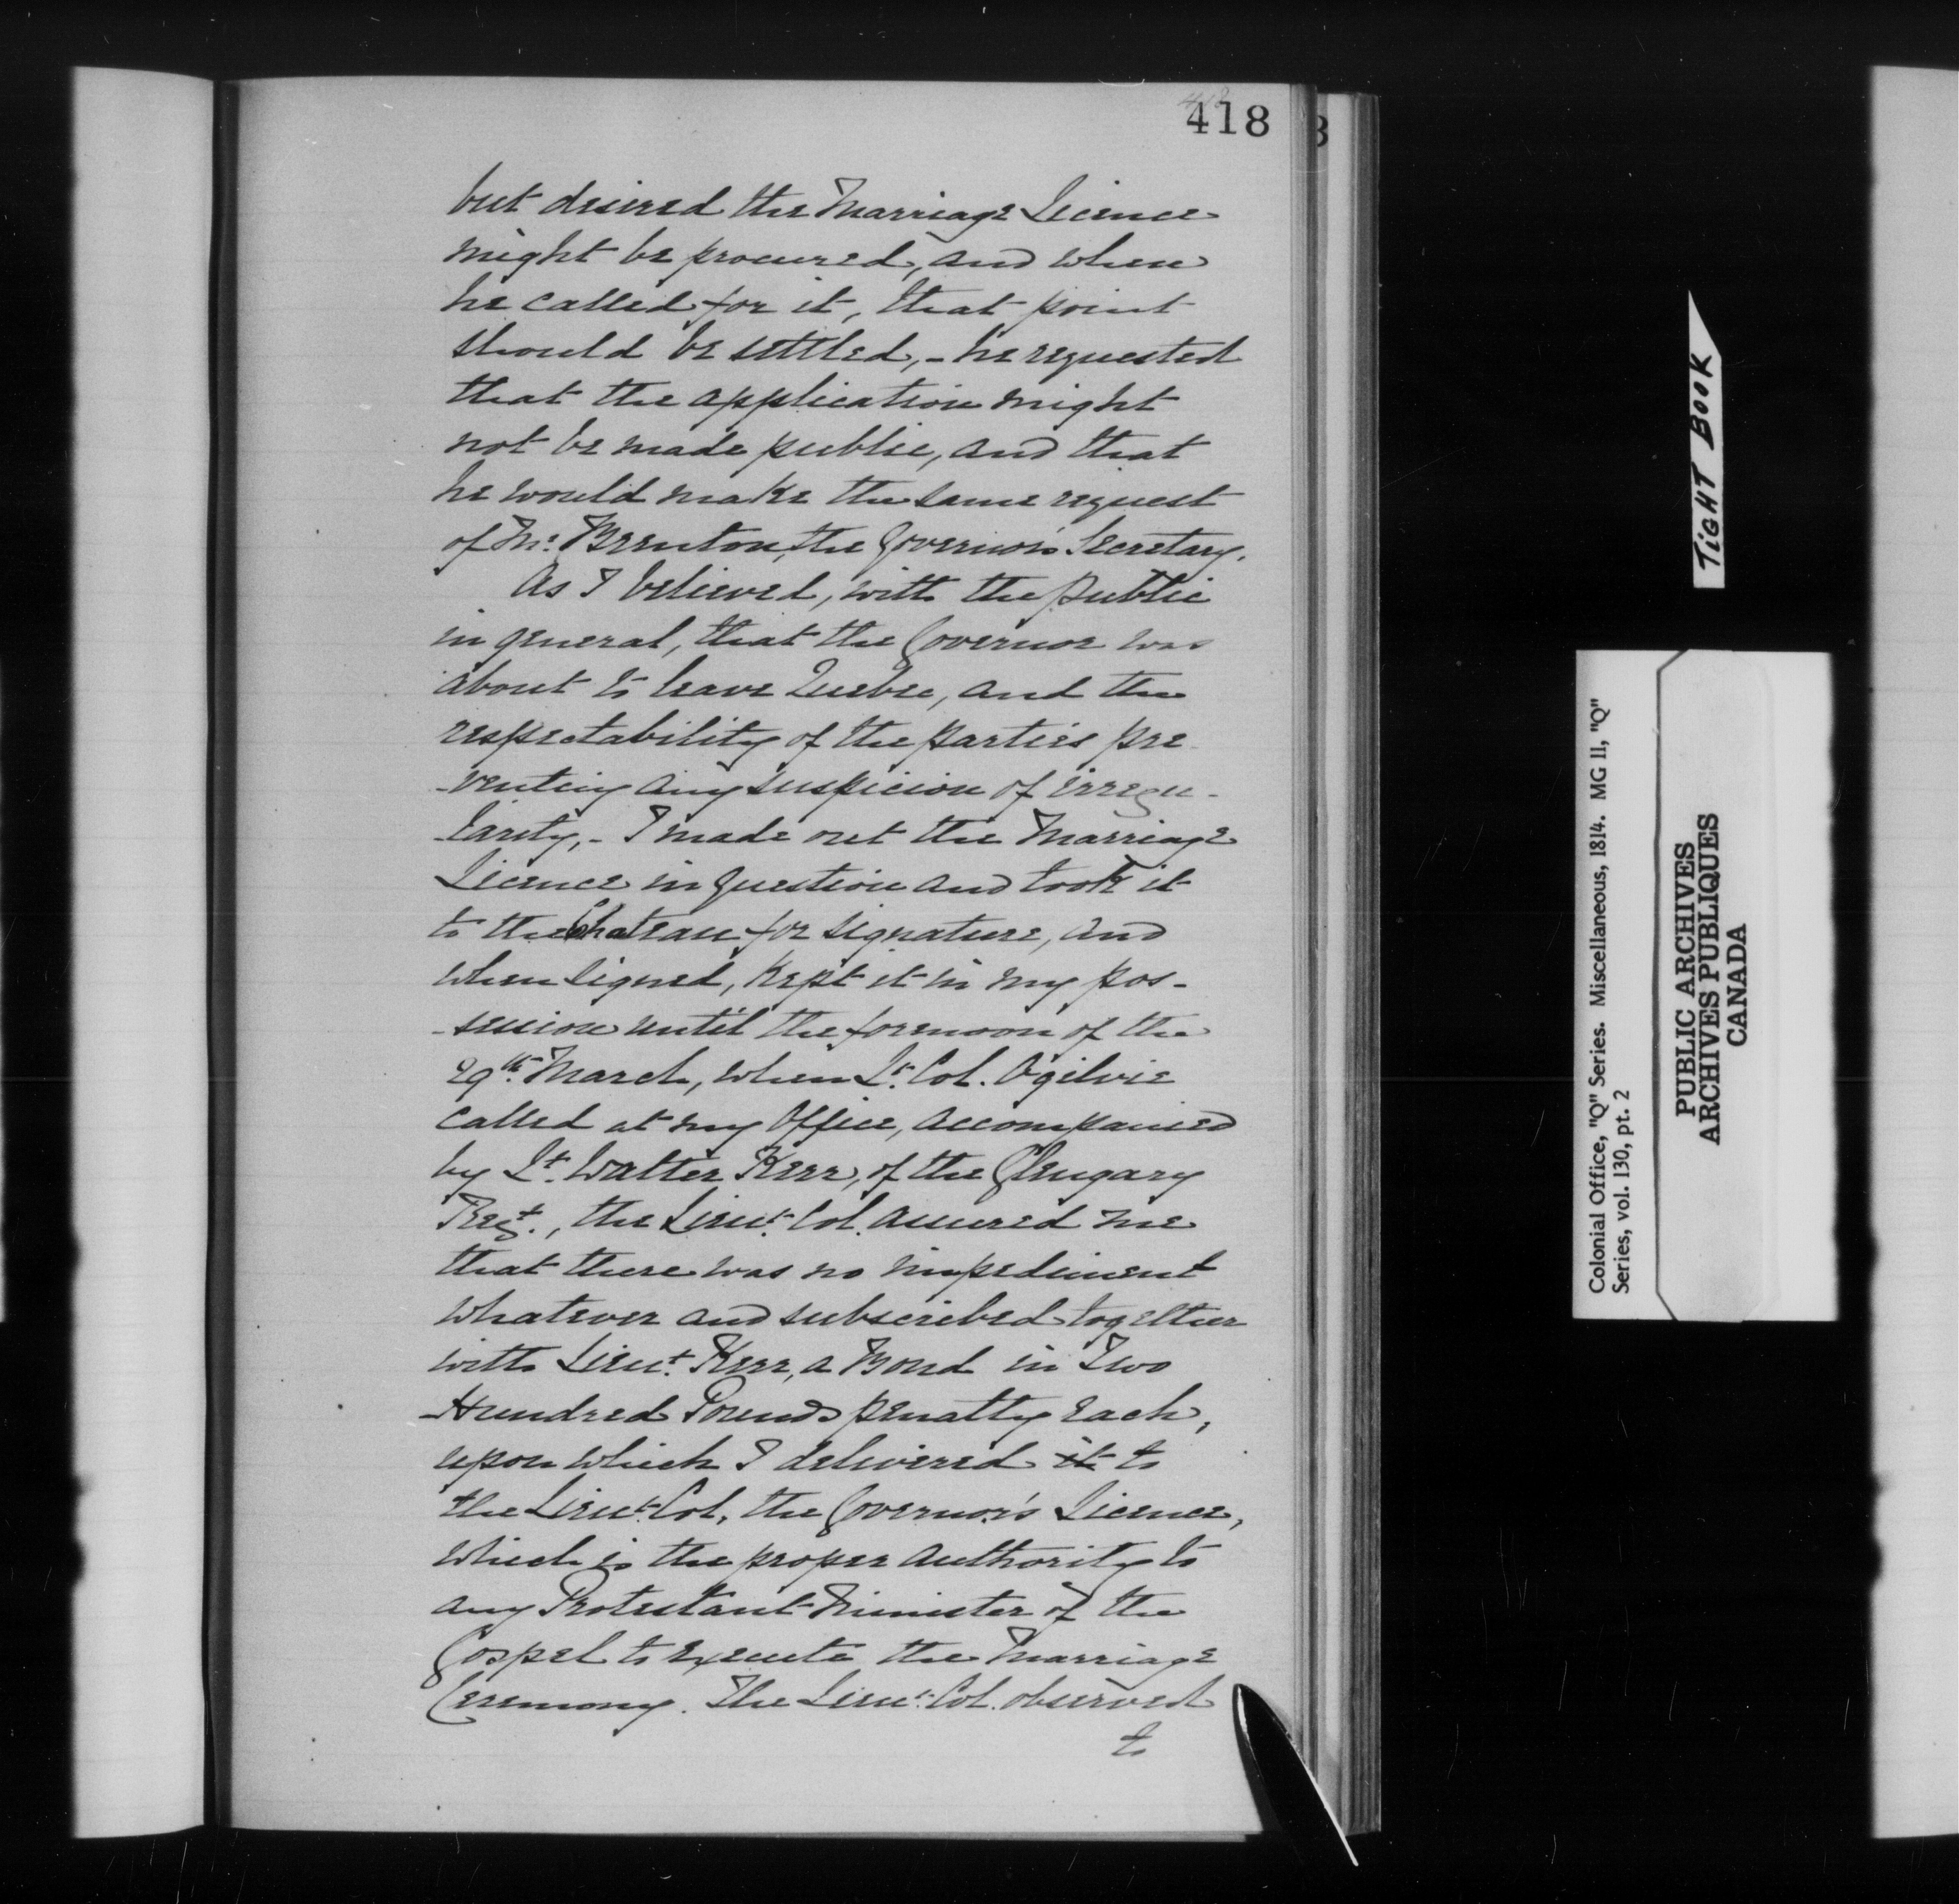 418
418
but desired the Marriage Licence
might be procured, and when
he called for it, that point
should be settled, - he requested
that the application might
not be made public, and that
he would make the same request
of Mr. Brenton, the Governor's Secretary.
As I believed, with the public
in general, that the Governor was
about to leave Quebec, and the
respectability of the parties pre-
-venting any suspicion of irregu-
-larity, - I made out the Marriage
Licence in question and took it
to the Chateau for signature, and
when signed, kept it in my pos-
-session until the forenoon of the
29th March, when Lt. Col. Ogilvie
called at my Office, accompanied
by Lt. Walter Kerr, of the Glengary
Regt., the Lieut. Col. assured me
that there was no impediment
whatever and subscribed together
with Lieut. Kerr, a Bond in Two
Hundred Pounds penalty each,
upon which I delivered it to
the Lieut. Col, the Governor's Licence,
which is the proper authority to
any Protestant Minister of the
Gospel to execute the Marriage
Ceremony. The Lieut. Col. observed
to
TIGHT BOOK
Colonial Office, "Q" Series. Miscellaneous, 1814. MG 11, "Q"
Series, vol. 130, pt. 2
PUBLIC ARCHIVES
ARCHIVES PUBLIQUES
CANADA